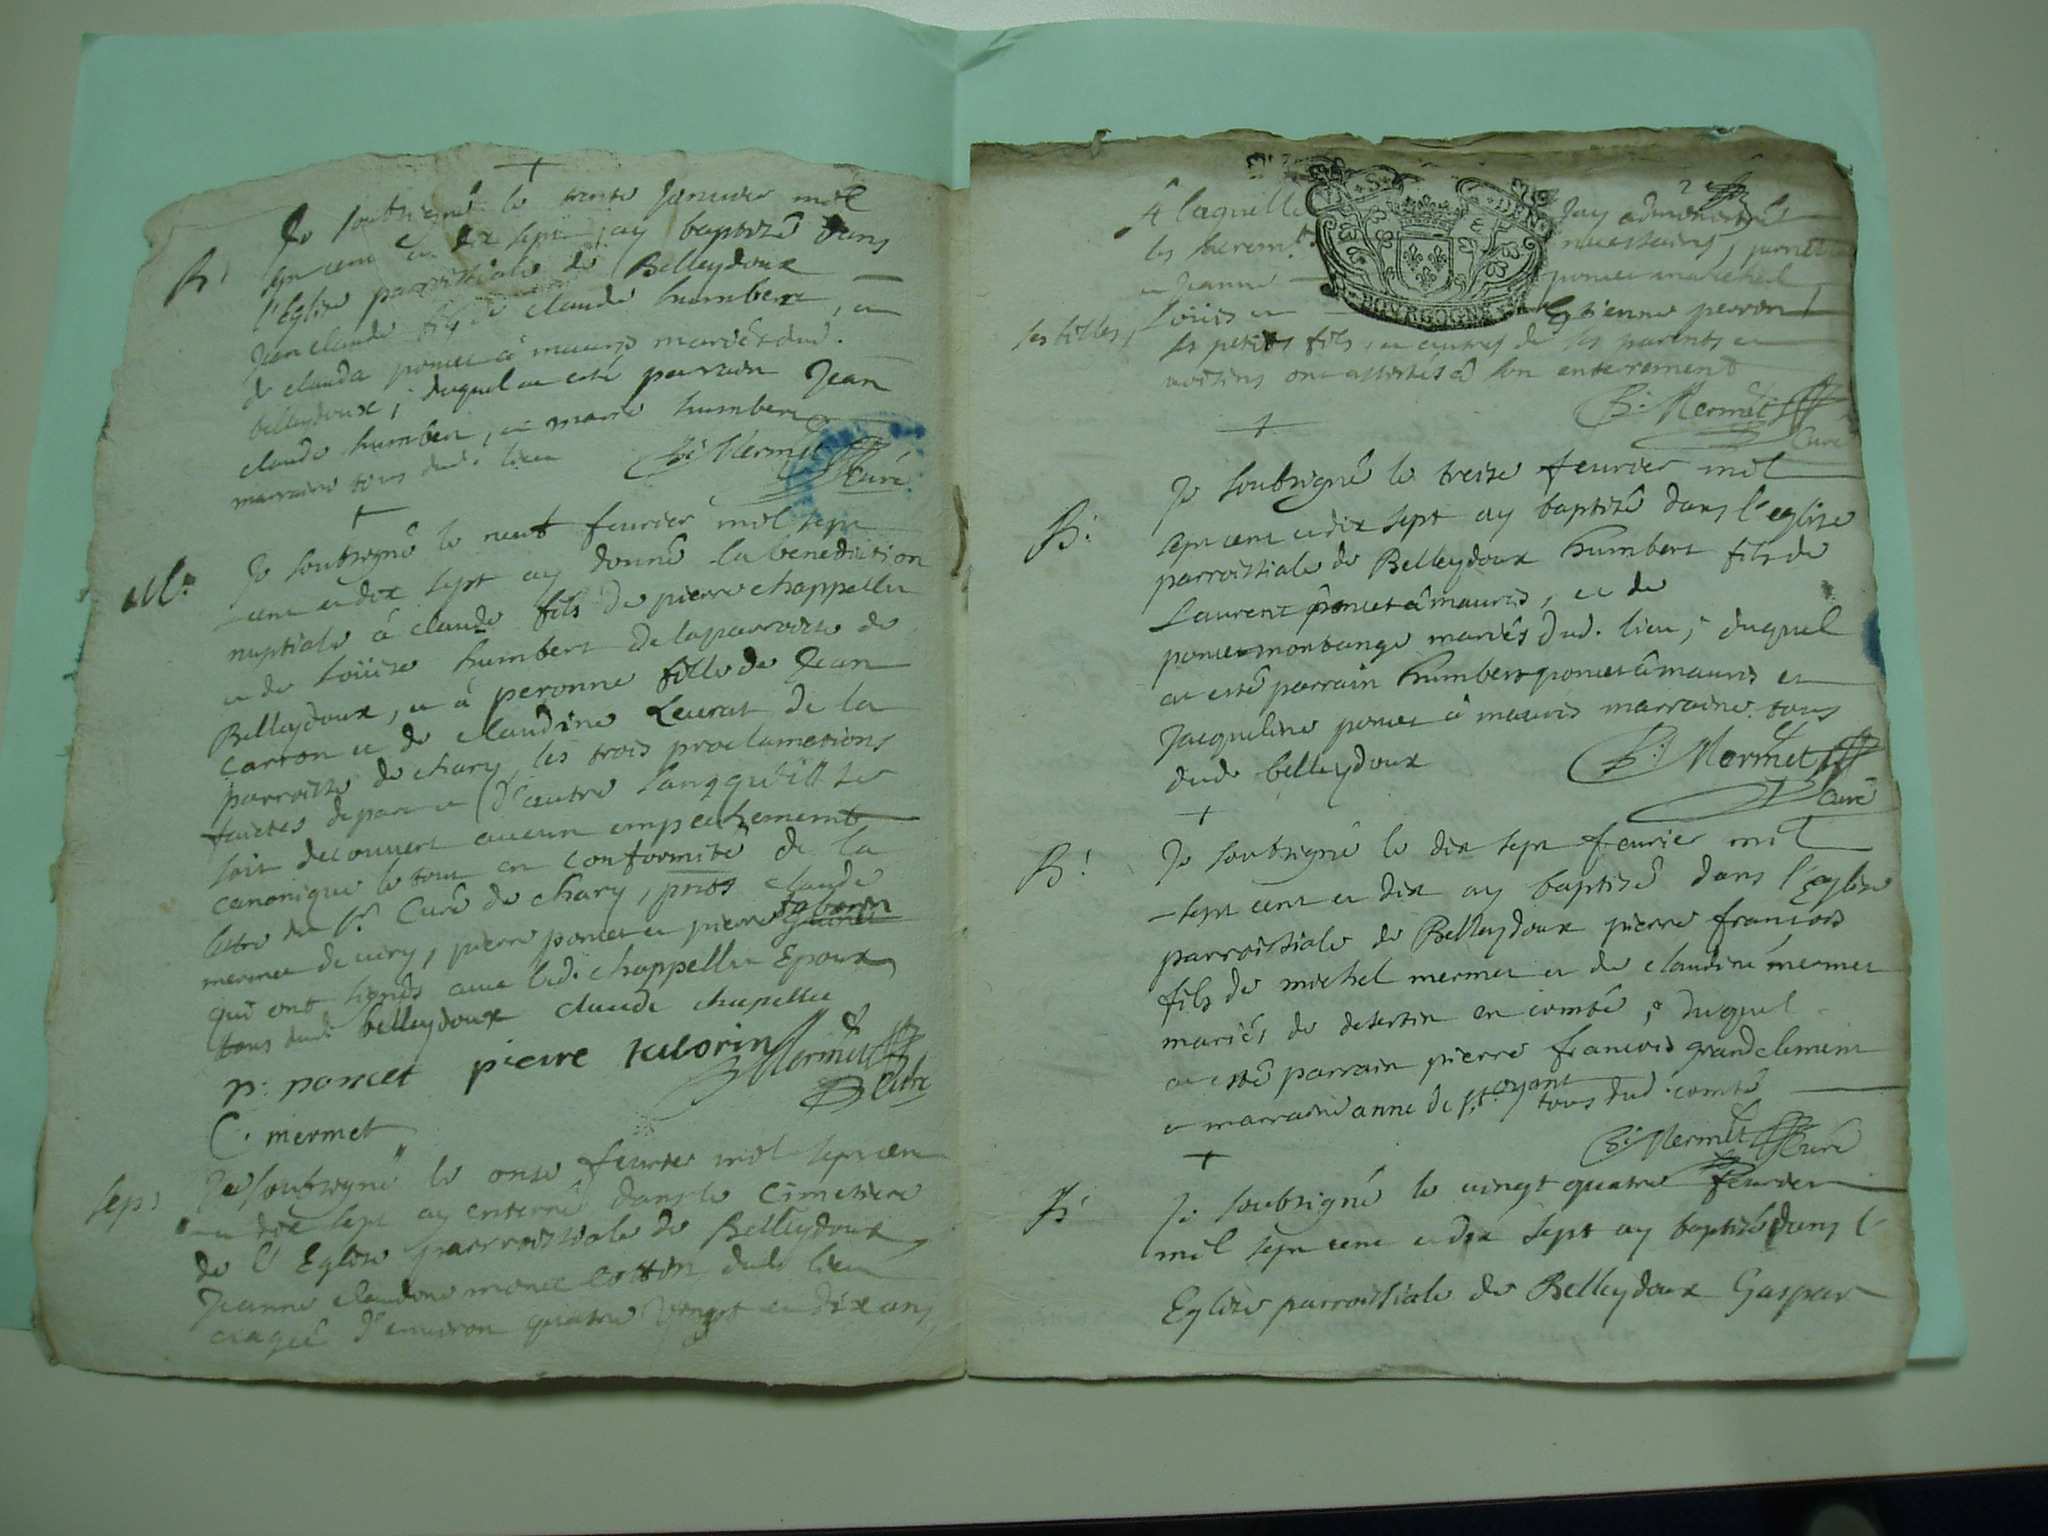 Je soubsigné le trente Janvier mil
B:
sept cent et dix sept ay baptizé dans
l'Eglise parroissiale de Belleydoux
Jean claude fils de claude humbert, et
de clauda poncet à mauris mariés dud.
belleydoux, duquel a esté parrain Jean
claude humbert, et marie humbert
marraine tous dud. lieu
B: Mermet Curé
M:
Je soubsigné le neuf feurier mil sept
cent et dix sept ay donné la benediction
nuptiale à claude fils de pierre chappellu
et de Loüise humbert de la parroisse de
Belleydoux, et à peronne fille de Jean
carron et de claudine Leurat de la
parroisse de chary, les trois proclamations
faictes de part et d'autre sans qu'il se
soit decouvert aucun empechement
canonique le tout en conformité de la
lettre du Sr. Curé de chary, pnts claude
mermet de viry, pierre poncet et pierre taborin
qui ont signés avec led. chappellu Epoux
tous dud. belleydoux claude chapellu
p: poncet pierre taborin Mermet Curé
C. mermet
sep:
Je soubsigné le onze feurier mil sept cent
et dix sept ay enterré dans le Cimetiere
de l'Eglise parroissiale de Belleydoux
Jeanne claudine monet cotton dud. lieu
eagée d'environ quatre vingt et dix ans
2e
à laquelle Jay administré
les sacremt. necessaires,
et Jeanne poncet
ses filles, Loüis et Estienne perron
ses petits fils, et autres de ses parents et
voisins ont assistés à son enterrement
BOURGOGNE
B: Mermet Curé
Je soubsigné le treize feurier mil
B:
sept cent et dix sept ay baptizé dans l'eglise
parroissiale de Belleydoux humbert fils de
Laurent poncet à mauris, et de
poncet montange mariés dud. lieu, duquel
a esté parrain humbert poncet à mauris et
Jacqueline poncet à mauris marraine tous
dud. belleydoux B: Mermet
Curé
Je soubsigné le dix sept feurier mil
B:
sept cent et dix ay baptizé dans l'Eglise
parroissiale de Belleydoux pierre francois
fils de michel mermet et de claudine mermet
mariés de desertin en comté, duquel
a esté parrain pierre francois grandclement
et marraine anne de st. oyant tous dud. comté
B: Mermet Curé
B:
Je soubsigné le vingt quatre feurier
mil sept cent et dix sept ay baptizé dans l'
Eglise parroissiale de Belleydoux Gaspar